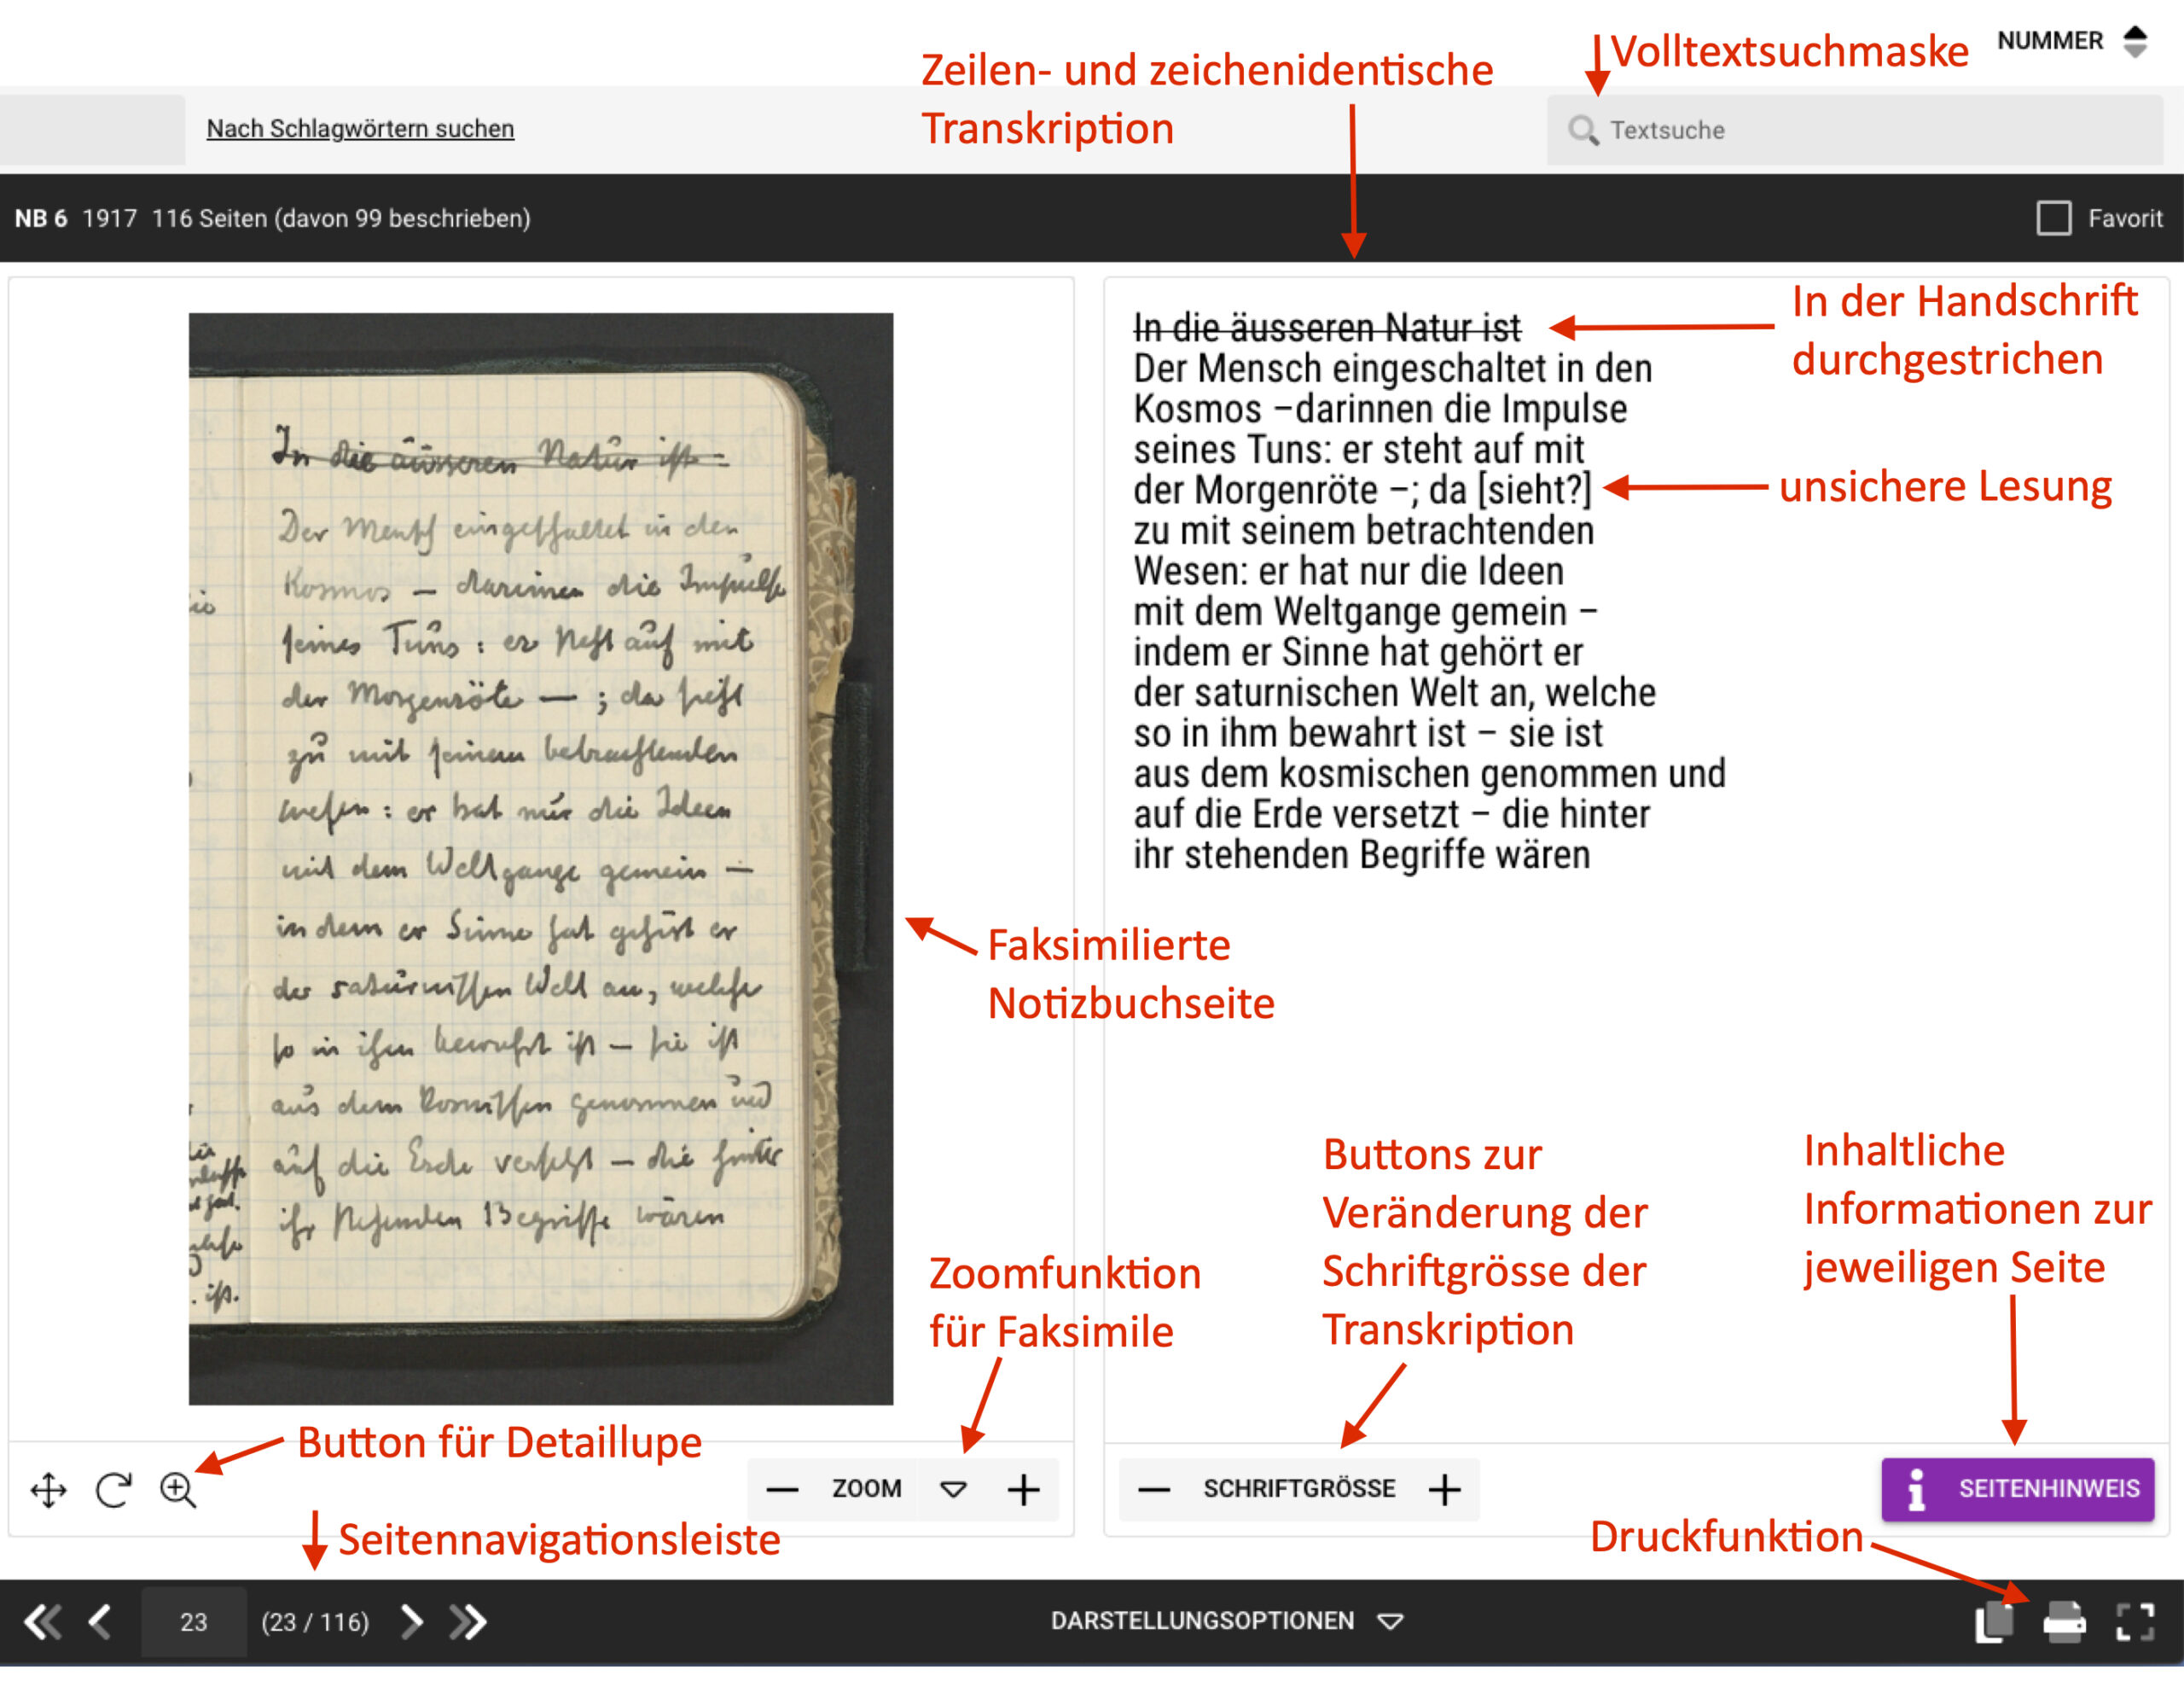 Volltextsuchmaske
NUMMER
Zeilen- und zeichenidentische
Transkription
Nach Schlagwörtern suchen
Textsuche
NB 6 1917 116 Seiten (davon 99 beschrieben)
Favorit
In die äusseren Natur ist
Der Mensch eingeschaltet in den
Kosmos – darinnen die Impulse
seines Tuns: er steht auf mit
der Morgenröte – ; da sieht
zu mit seinem betrachtenden
Wesen: er hat nur die Ideen
mit dem Weltgange gemein –
indem er Sinne hat gehört er
der saturnischen Welt an, welche
so in ihm bewahrt ist – sie ist
aus dem kosmischen genommen und
auf die Erde versetzt – die hinter
ihr stehenden Begriffe wären
ist.
In die äusseren Natur ist
Der Mensch eingeschaltet in den
Kosmos –darinnen die Impulse
seines Tuns: er steht auf mit
der Morgenröte –; da [sieht?]
zu mit seinem betrachtenden
Wesen: er hat nur die Ideen
mit dem Weltgange gemein –
indem er Sinne hat gehört er
der saturnischen Welt an, welche
so in ihm bewahrt ist – sie ist
aus dem kosmischen genommen und
auf die Erde versetzt – die hinter
ihr stehenden Begriffe wären
In der Handschrift
durchgestrichen
unsichere Lesung
Faksimilierte
Notizbuchseite
Zoomfunktion
für Faksimile
Buttons zur
Veränderung der
Schriftgrösse der
Transkription
Inhaltliche
Informationen zur
jeweiligen Seite
Button für Detaillupe
ZOOM
SCHRIFTGRÖSSE
SEITENHINWEIS
Seitennavigationsleiste
Druckfunktion
23 (23 / 116)
DARSTELLUNGSOPTIONEN